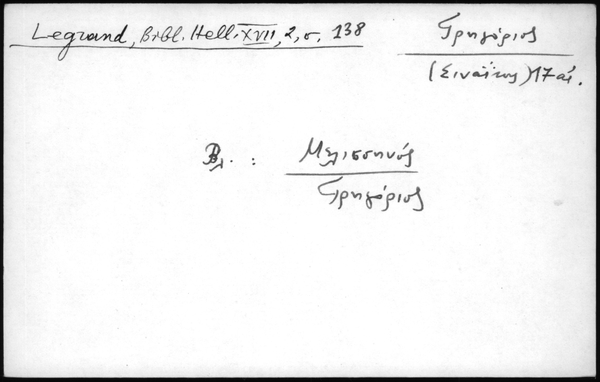 Legrand, Bibl. Hell. XVII, 2, σ. 138
Γρηγόριος
(Σιναΐτης) 17 αἰ.
Βλ. : Μελισσηνός
Γρηγόριος